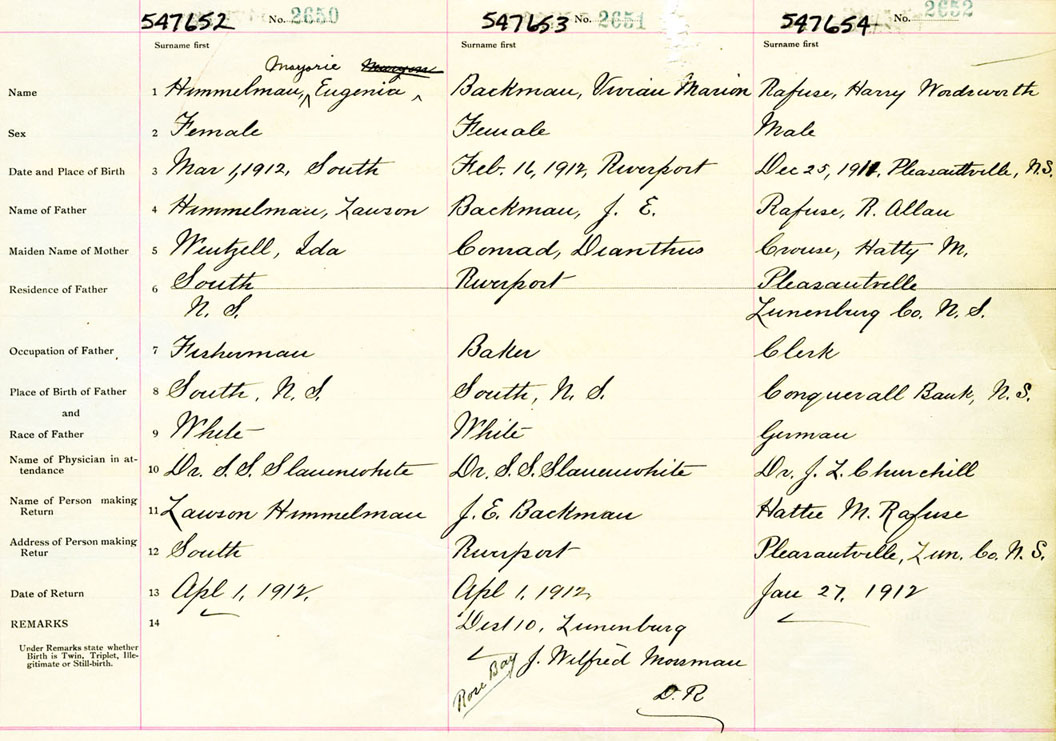 547652 No. 2650 547653 No. 2651 547654 No. 2652
Surname first Surname first Surname first
Marjorie
Name 1 Himmelman, Eugenia Backman, Vivian Marion Rafuse, Harry Wordsworth
Sex 2 Female Female Male
Date and Place of Birth 3 Mar 1, 1912, South Feb. 16, 1912, Riverport Dec 25, 1911, Pleasantville, N.S.
Name of Father 4 Himmelman, Lawson Backman, J. E. Rafuse, R. Allan
Maiden Name of Mother 5 Wentzell, Ida Conrad, Dianthus Crouse, Hatty M.
Residence of Father 6 South Riverport Pleasantville
N. S. Lunenburg Co. N. S.
Occupation of Father 7 Fisherman Baker Clerk
Place of Birth of Father 8 South, N. S. South, N. S. Conquerall Bank, N. S.
and
Race of Father 9 White White German
Name of Physician in at-
tendance 10 Dr. S. S. Slauenwhite Dr. S. S. Slauenwhite Dr. J. L. Churchill
Name of Person making
Return 11 Lawson Himmelman J. E. Backman Hattie M. Rafuse
Address of Person making
Retur 12 South Riverport Pleasantville, Lun. Co. N. S.
Date of Return 13 Apl 1, 1912. Apl 1, 1912, Jan 27, 1912
REMARKS 14 Dist 10, Lunenburg
Under Remarks state whether
Birth is Twin, Triplet, Ille-
gitimate or Still-birth.
Rose Bay J. Wilfred Mossman
D. R